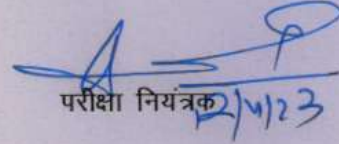 परीक्षा नियंत्रक
12/4/23